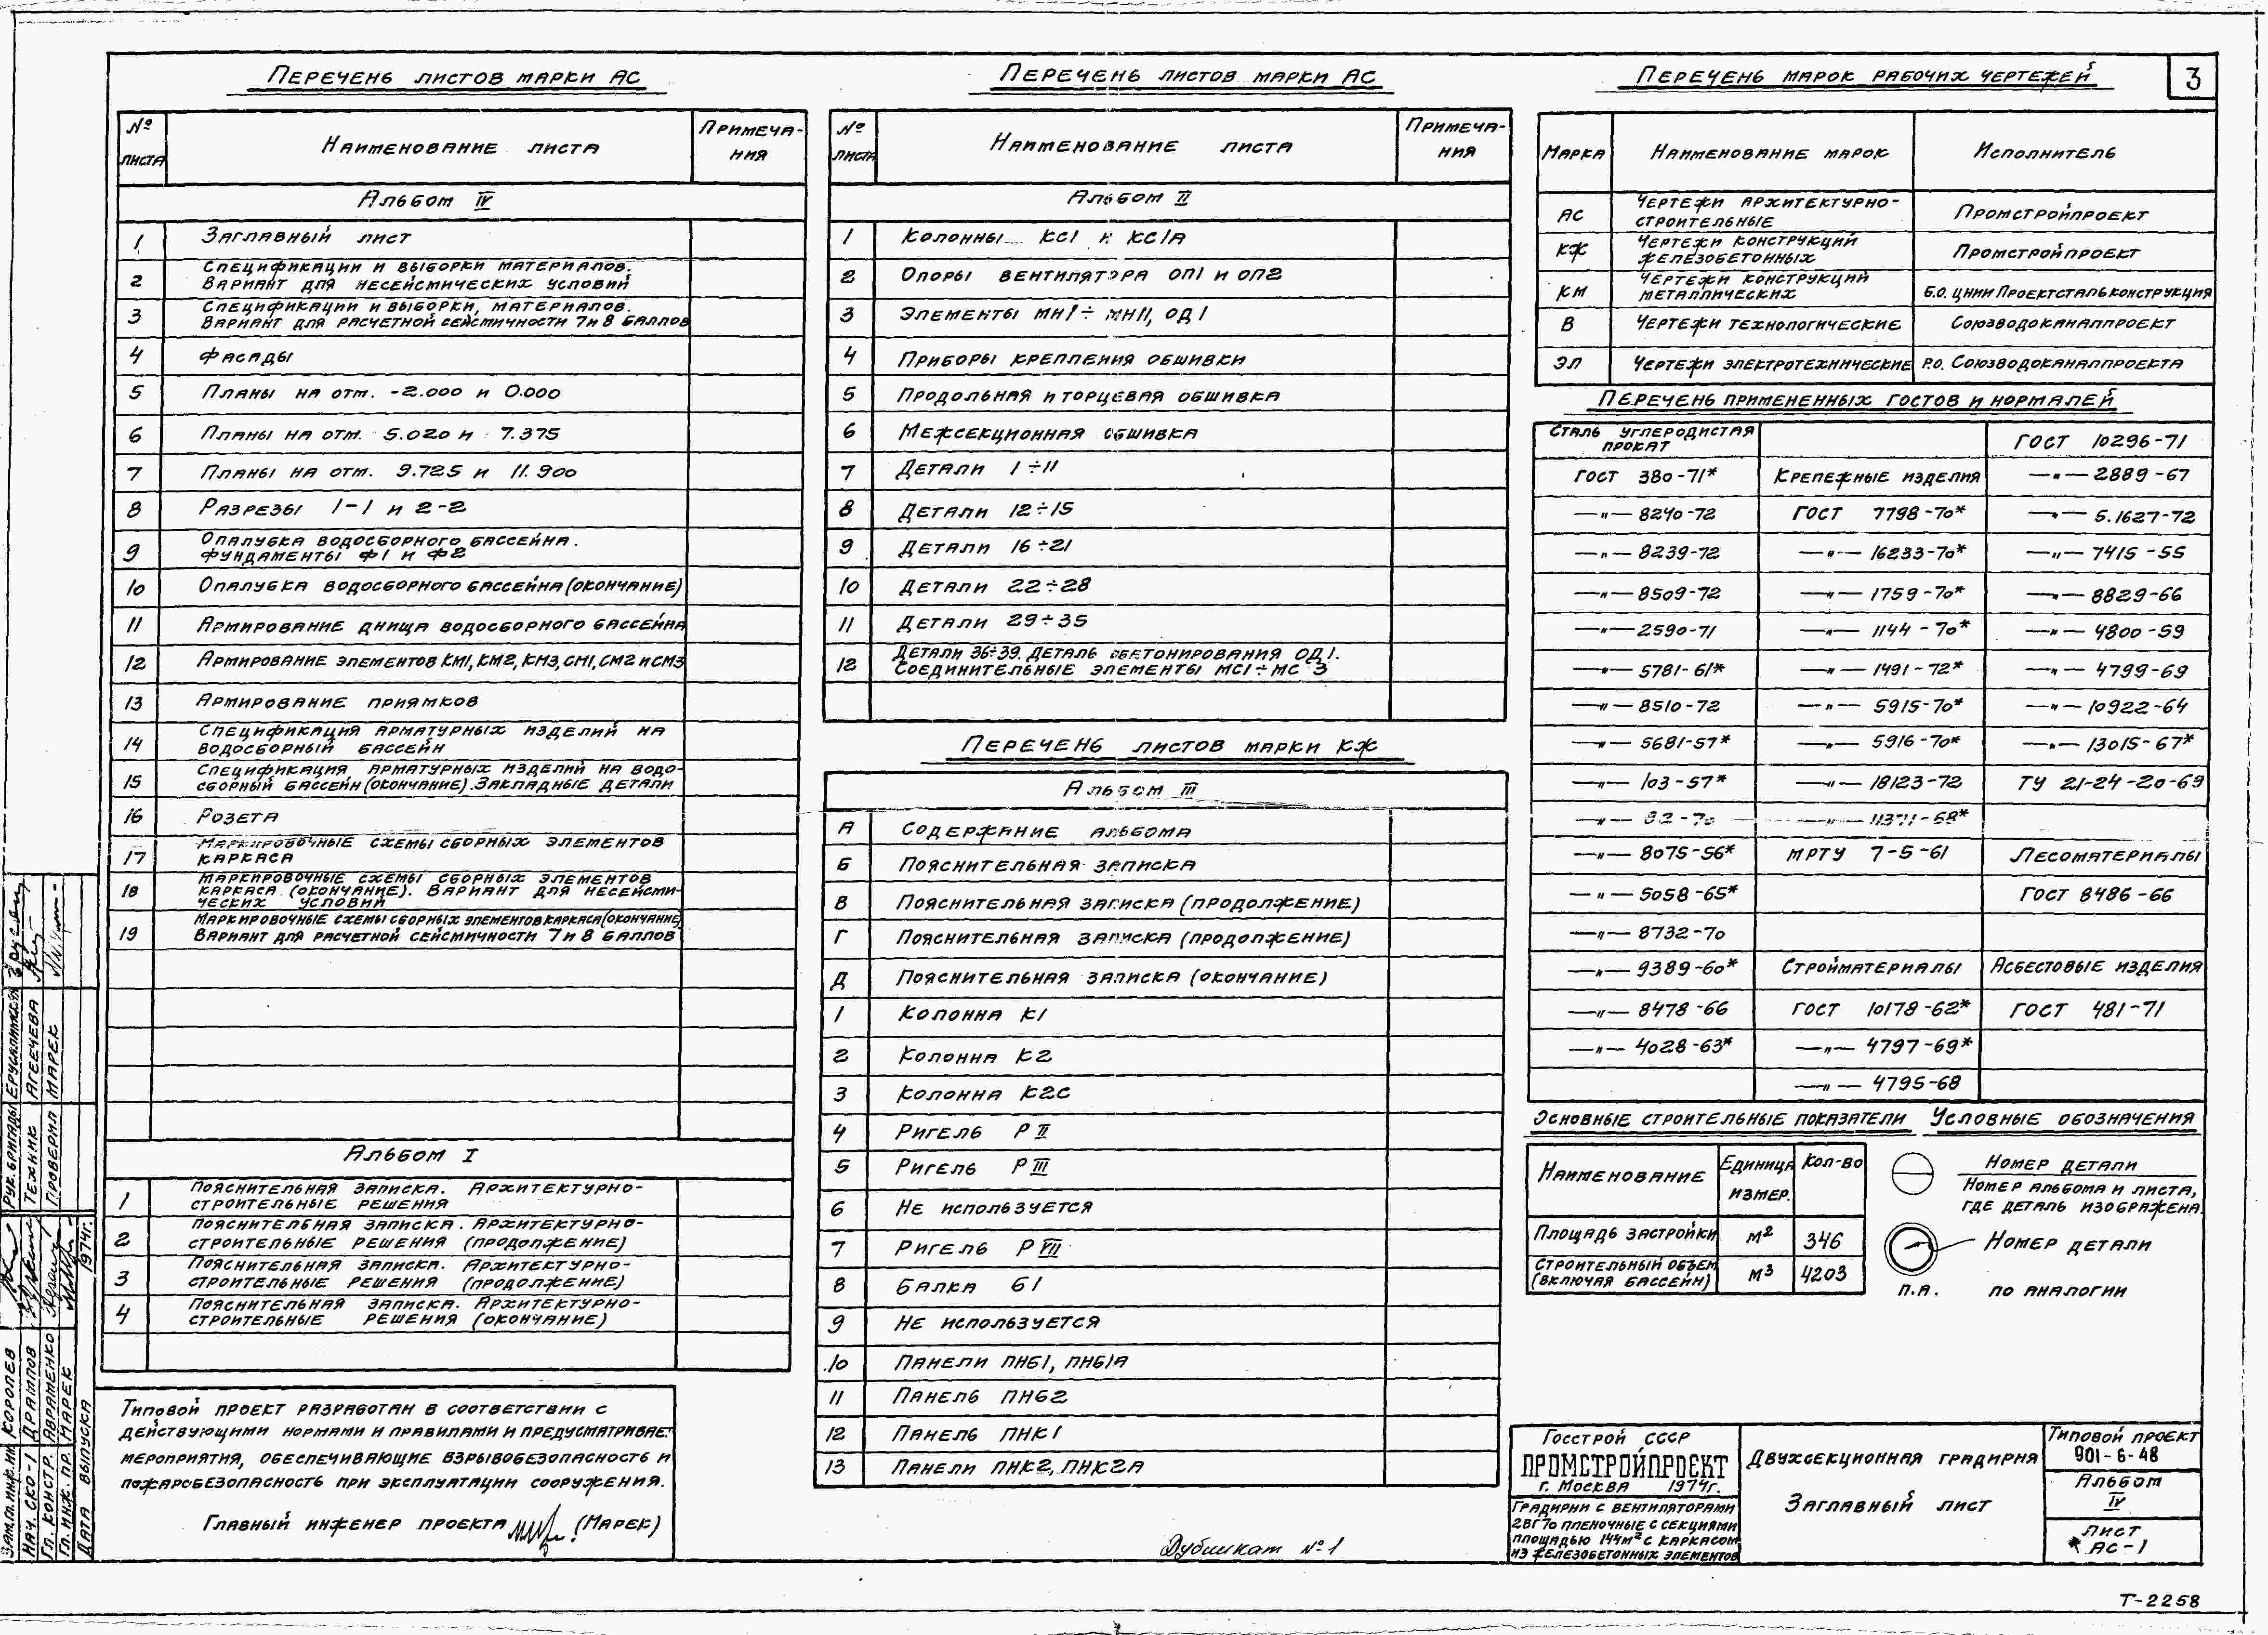 3
Перечень листов марки АС
№ листа
Наименование листа
Примечания
Альбом IV
1 Заглавный лист
2 Спецификации и выборки материалов.
Вариант для несейсмических условий
3 Спецификации и выборки, материалов.
Вариант для расчетной сейсмичности 7 и 8 баллов
4 Фасады
5 Планы на отм. -2.000 и 0.000
6 Планы на отм. 5.020 и 7.375
7 Планы на отм. 9.725 и 11.900
8 Разрезы 1-1 и 2-2
9 Опалубка водосборного бассейна.
Фундаменты Ф1 и Ф2
10 Опалубка водосборного бассейна (окончание)
11 Армирование днища водосборного бассейна
12 Армирование элементов КМ1, КМ2, КМ3, СМ1, СМ2 и СМ3
13 Армирование приямков
14 Спецификация арматурных изделий на
водосборный бассейн
15 Спецификация арматурных изделий на водо-
сборный бассейн (окончание). Закладные детали
16 Розета
17 Маркировочные схемы сборных элементов
каркаса
18 Маркировочные схемы сборных элементов
каркаса (окончание). Вариант для несейсми-
ческих условий
19 Маркировочные схемы сборных элементов каркаса (окончание)
Вариант для расчетной сейсмичности 7 и 8 баллов
Альбом I
1 Пояснительная записка. Архитектурно-
строительные решения
2 Пояснительная записка. Архитектурно-
строительные решения (продолжение)
3 Пояснительная записка. Архитектурно-
строительные решения (продолжение)
4 Пояснительная записка. Архитектурно-
строительные решения (окончание)
Типовой проект разработан в соответствии с
действующими нормами и правилами и предусматривает
мероприятия, обеспечивающие взрывобезопасность и
пожаробезопасность при эксплуатации сооружения.
Главный инженер проекта (Марек)
Перечень листов марки АС
№ листа
Наименование листа
Примечания
Альбом II
1 Колонны КС1 и КС1А
2 Опоры вентилятора ОП1 и ОП2
3 Элементы МН1÷МН11, ОД1
4 Приборы крепления обшивки
5 Продольная и торцевая обшивка
6 Межсекционная обшивка
7 Детали 1÷11
8 Детали 12÷15
9 Детали 16÷21
10 Детали 22÷28
11 Детали 29÷35
12 Детали 36÷39. Деталь обетонирования ОД1.
Соединительные элементы МС1÷МС3
Перечень листов марки КЖ
Альбом III
А Содержание альбома
Б Пояснительная записка
В Пояснительная записка (продолжение)
Г Пояснительная записка (продолжение)
Д Пояснительная записка (окончание)
1 Колонна К1
2 Колонна К2
3 Колонна К2С
4 Ригель РII
5 Ригель РIII
6 Не используется
7 Ригель РVII
8 Балка Б1
9 Не используется
10 Панели ПНБ1, ПНБ1А
11 Панель ПНБ2
12 Панель ПНК1
13 Панели ПНК2, ПНК2А
Дубликат №1
Перечень марок рабочих чертежей
Марка Наименование марок Исполнитель
АС Чертежи архитектурно-
строительные Промстройпроект
КЖ Чертежи конструкций
железобетонных Промстройпроект
КМ Чертежи конструкций
металлических Б.О. ЦНИИПроектстальконструкция
В Чертежи технологические Союзводоканалпроект
ЭЛ Чертежи электротехнические Р.О. Союзводоканалпроекта
Перечень примененных ГОСТов и нормалей
Сталь углеродистая
прокат
ГОСТ 380-71*
—"— 8240-72
—"— 8239-72
—"— 8509-72
—"— 2590-71
—"— 5781-61*
—"— 8510-72
—"— 5681-57*
—"— 103-57*
—"— 82-70
—"— 8075-56*
—"— 5058-65*
—"— 8732-70
—"— 9389-60*
—"— 8478-66
—"— 4028-63*
Крепежные изделия
ГОСТ 7798-70*
—"— 16233-70*
—"— 1759-70*
—"— 1144-70*
—"— 1491-72*
—"— 5915-70*
—"— 5916-70*
—"— 18123-72
—"— 11371-68*
МРТУ 7-5-61
Стройматериалы
ГОСТ 10178-62*
—"— 4797-69*
—"— 4795-68
ГОСТ 10296-71
—"— 2889-67
—"— 5.1627-72
—"— 7415-55
—"— 8829-66
—"— 4800-59
—"— 4799-69
—"— 10922-64
—"— 13015-67*
ТУ 21-24-20-69
Лесоматериалы
ГОСТ 8486-66
Асбестовые изделия
ГОСТ 481-71
Основные строительные показатели
Наименование Единица измер. Кол-во
Площадь застройки м² 346
Строительный объем
(включая бассейн) м³ 4203
Условные обозначения
Номер детали
Номер альбома и листа,
где деталь изображена.
Номер детали
п.а. по аналогии
Госстрой СССР
ПРОМСТРОЙПРОЕКТ
г. Москва 1974г.
Градирни с вентиляторами
2ВГ70 пленочные с секциями
площадью 144м² с каркасом
из железобетонных элементов
Двухсекционная градирня
Заглавный лист
Типовой проект
901-6-48
Альбом
IV
Лист
АС-1
Т-2258
Рук. бригады Ерусалимская
Техник Агеечева
Проверил Марек
Зам.гл.инж.ин. Королев
Нач. СКО-1 Драмлов
Гл. констр. Авраменко
Гл. инж. пр. Марек
Дата выпуска 1974г.